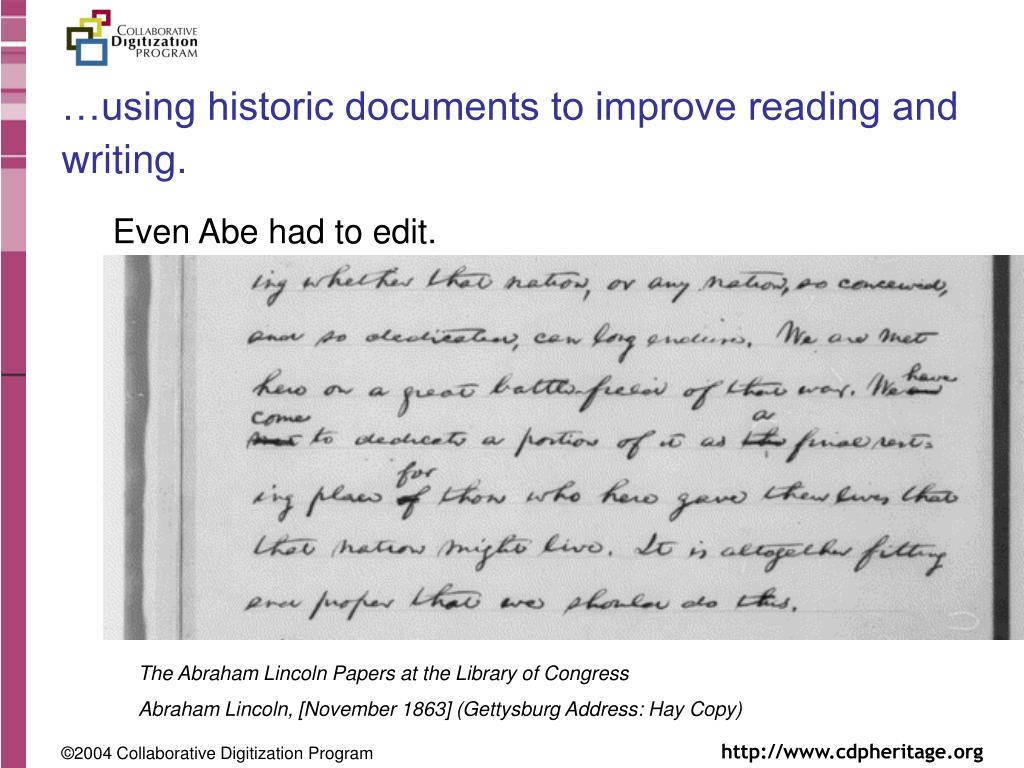 COLLABORATIVE
Digitization
PROGRAM
…using historic documents to improve reading and
writing.
Even Abe had to edit.
ing whether that nation, or any nation, so conceived,
and so dedicated, can long endure. We are met
here on a great battle-field of that war. We are have
come
met to dedicate a portion of it as the a final rest-
for
ing place of those who here gave their lives that
that nation might live. It is altogether fitting
and proper that we should do this.
The Abraham Lincoln Papers at the Library of Congress
Abraham Lincoln, [November 1863] (Gettysburg Address: Hay Copy)
©2004 Collaborative Digitization Program
http://www.cdpheritage.org